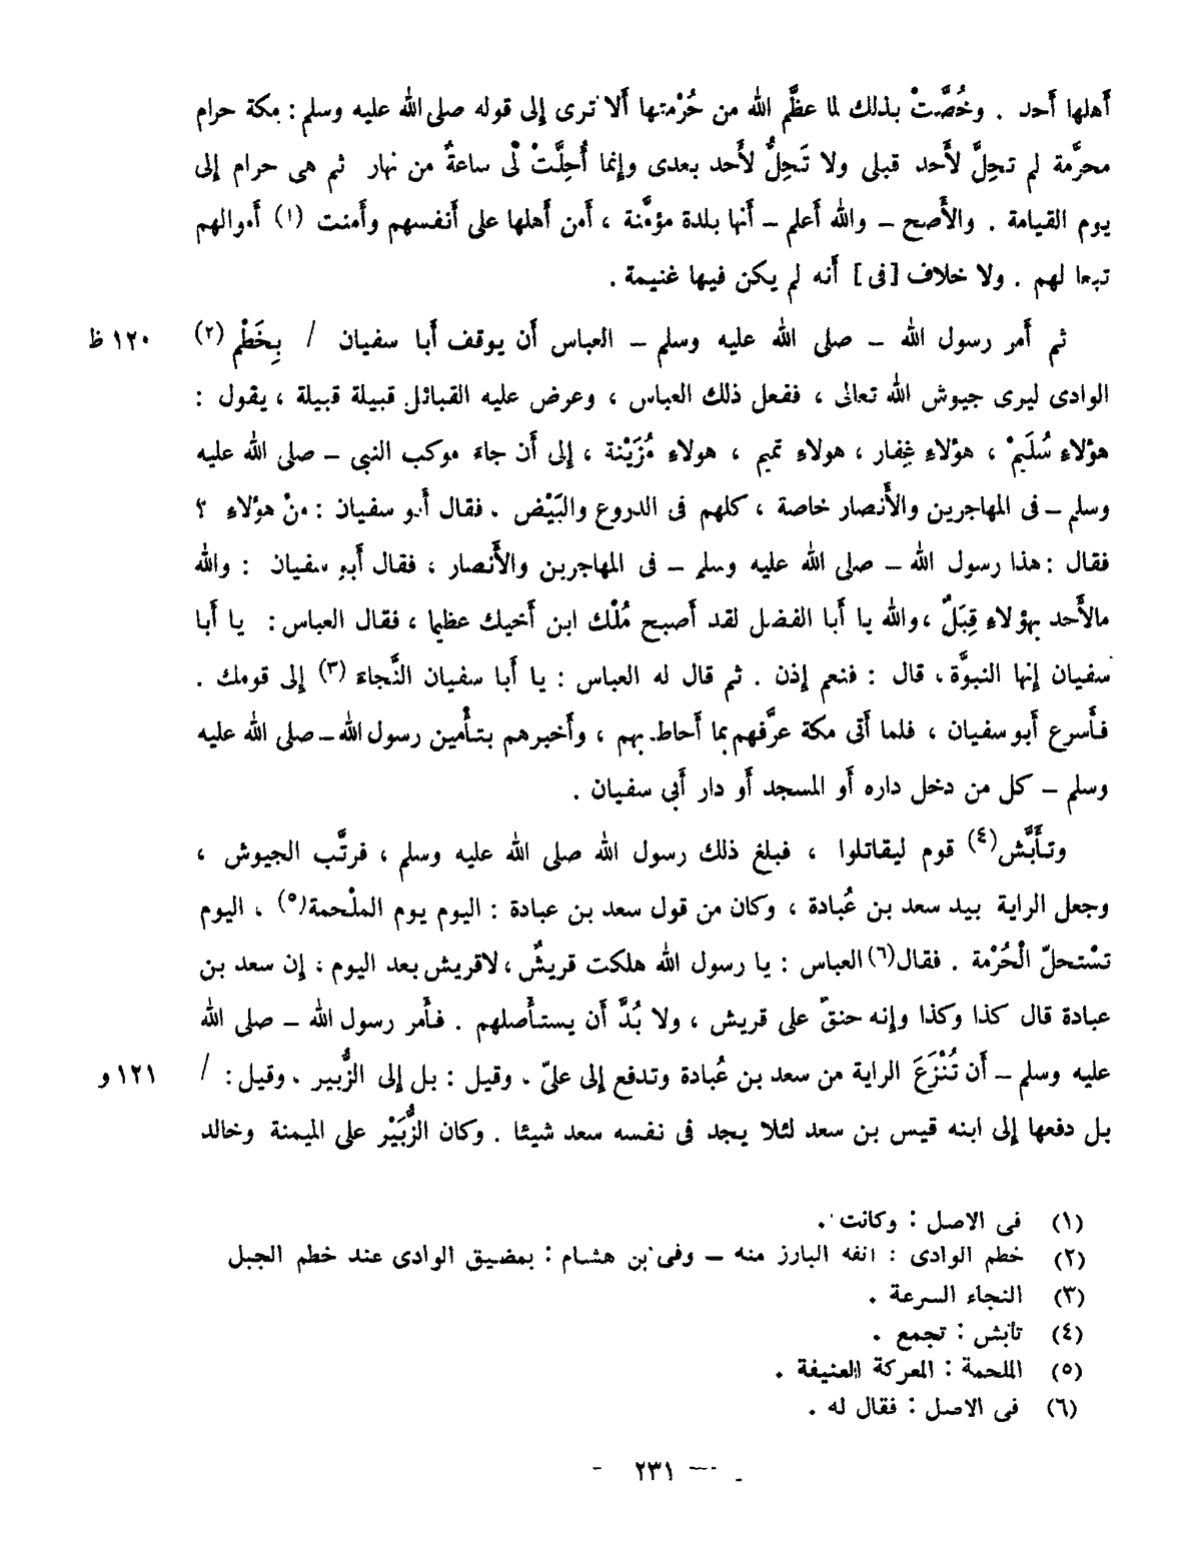 أهلها أحد . وخُصَّتْ بذلك لما عظَّم الله من حُرْمتها ألا ترى إلى قوله صلى الله عليه وسلم : مكة حرام
محرَّمة لم تحِلَّ لأحد قبلى ولا تَحِلُّ لأحد بعدى وإنما أُحِلَّتْ لْى ساعةً من نهار ثم هى حرام إلى
يوم القيامة . والأصح – والله أعلم – أنها بلدة مؤمَّنة ، أمن أهلها على أنفسهم وأمنت (١) أموالهم
تبعا لهم . ولا خلاف [فى] أنه لم يكن فيها غنيمة .
ثم أمر رسول الله – صلى الله عليه وسلم – العباس أن يوقف أبا سفيان / بِخَطْم (٢) ١٢٠ ظ
الوادى ليرى جيوش الله تعالى ، ففعل ذلك العباس ، وعرض عليه القبائل قبيلة قبيلة ، يقول :
هؤلاء سُلَيمْ ، هؤلاء غِفار ، هولاء تميم ، هولاء مُزَيْنة ، إلى أن جاء موكب النبى – صلى الله عليه
وسلم – فى المهاجرين والأنصار خاصة ، كلهم فى الدروع والبَيْض . فقال أبو سفيان : منْ هؤلاء ؟
فقال : هذا رسول الله – صلى الله عليه وسلم – فى المهاجرين والأنصار ، فقال أبو سفيان : والله
مالأحد بهؤلاء قِبَلٌ ، والله يا أبا الفضل لقد أصبح مُلْك ابن أخيك عظيما ، فقال العباس : يا أبا
سفيان إنها النبوَّة ، قال : فنعم إذن . ثم قال له العباس : يا أبا سفيان النَّجاء (٣) إلى قومك .
فأسرع أبو سفيان ، فلما أتى مكة عرَّفهم بما أحاط بهم ، وأخبرهم بتأْمين رسول الله – صلى الله عليه
وسلم – كل من دخل داره أو المسجد أو دار أبى سفيان .
وتأبَّش (٤) قوم ليقاتلوا ، فبلغ ذلك رسول الله صلى الله عليه وسلم ، فرتَّب الجيوش ،
وجعل الراية بيد سعد بن عُبادة ، وكان من قول سعد بن عبادة : اليوم يوم الملْحمة (٥) ، اليوم
تسْتحلّ الْحُرْمة . فقال (٦) العباس : يا رسول الله هلكت قريشٌ ، لاقريش بعد اليوم ، إن سعد بن
عبادة قال كذا وكذا وإنه حنقٌ على قريش ، ولا بُدَّ أن يستأصلهم . فأمر رسول الله – صلى الله
عليه وسلم – أن تُنْزَعَ الراية من سعد بن عُبادة وتدفع إلى علىّ . وقيل : بل إلى الزُّبير . وقيل : / ١٢١ و
بل دفعها إلى ابنه قيس بن سعد لئلا يجد فى نفسه سعد شيئا . وكان الزُّبَيْر على الميمنة وخالد
(١) فى الاصل : وكانت .
(٢) خطم الوادى : انفه البارز منه – وفى بن هشام : بمضيق الوادى عند خطم الجبل
(٣) النجاء السرعة .
(٤) تأبش : تجمع .
(٥) الملحمة : المعركة العنيفة .
(٦) فى الاصل : فقال له .
– ٢٣١ –